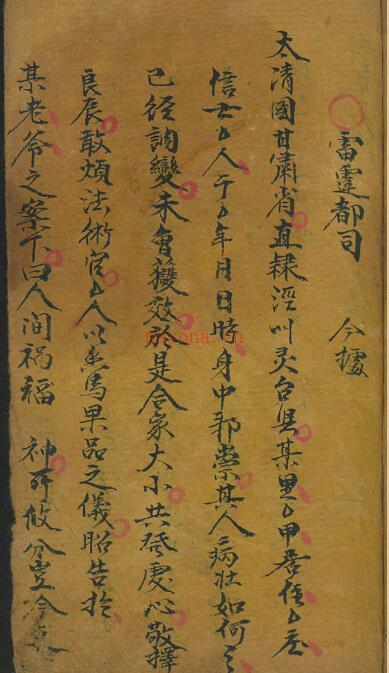 雷霆都司　今據
太清國甘肅省直隸涇州灵台县某里厶甲居住厶厶
信士厶人于厶年月日時身中邪祟其人病壮如何之
已经調變未曾獲效於是合家大小共發虔心敬擇
良辰敢煩法術官厶人以馬果品之儀昭告於
某老爷之案下曰人间祸福　神所攸分豈冷